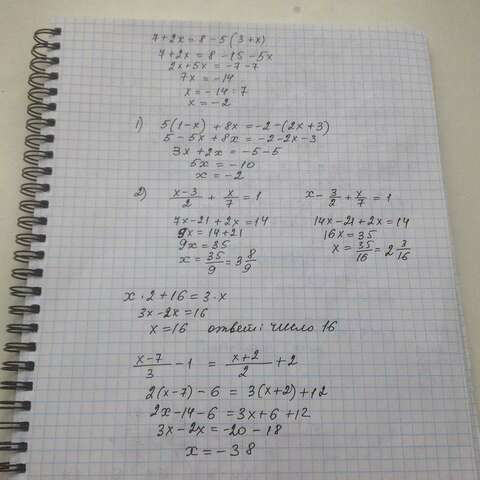 7+2x=8-5(3+x)
7+2x=8-15-5x
2x+5x=-7-7
7x=-14
x=-14:7
x=-2
1) 5(1-x)+8x=-2-(2x+3)
5-5x+8x=-2-2x-3
3x+2x=-5-5
5x=-10
x=-2
2) (x-3)/2 + x/7 = 1
7x-21+2x=14
9x=14+21
9x=35
x=35/9=3 8/9
x-3/2+x/7=1
14x-21+2x=14
16x=35
x=35/16=2 3/16
x·2+16=3·x
3x-2x=16
x=16 ответ: число 16
(x-7)/3 -1 = (x+2)/2 +2
2(x-7)-6=3(x+2)+12
2x-14-6=3x+6+12
3x-2x=-20-18
x=-38